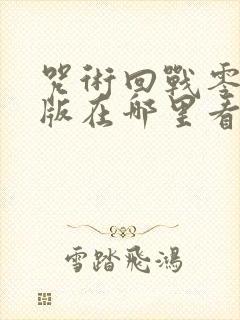 咒術回戰零
版在哪里看
雪踏飛鴻